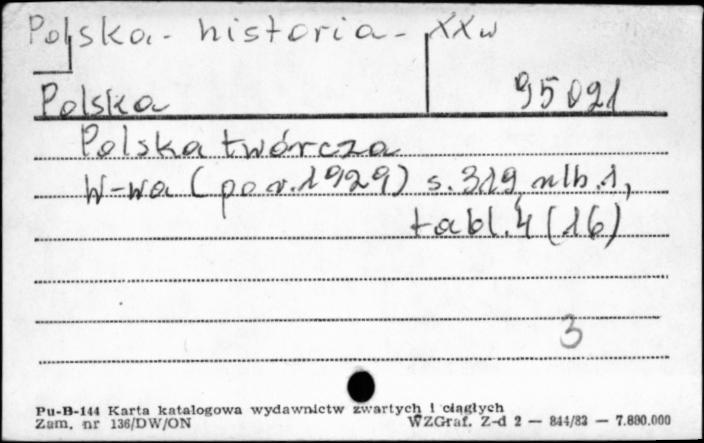 Polska - historia - XX w
Polska 95021
Polska twórcza
W-wa (po r. 1929) s. 319, nlb. 1,
tabl. 4 (16)
3
Pu-B-144 Karta katalogowa wydawnictw zwartych i ciągłych
Zam. nr 136/DW/ON WZGraf. Z-d 2 — 844/83 — 7.880.000